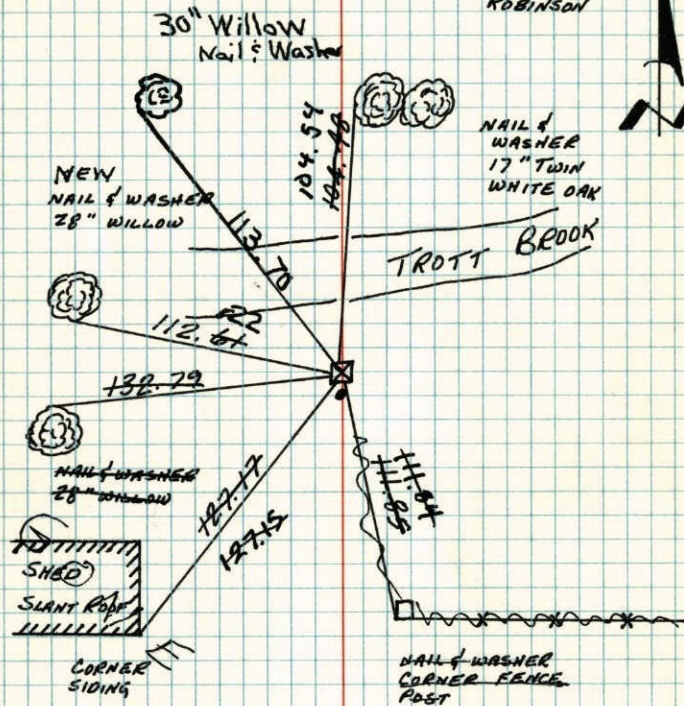 ROBINSON
30" Willow
Nail & Washer
NAIL &
WASHER
17" TWIN
WHITE OAK
104.54
104.40
NEW
NAIL & WASHER
28" WILLOW
113.70
TROTT BROOK
.22
112.61
132.79
NAIL & WASHER
28" WILLOW
127.17
127.15
111.84
111.85
SHED
SLANT ROOF
CORNER
SIDING
NAIL & WASHER
CORNER FENCE
POST
N